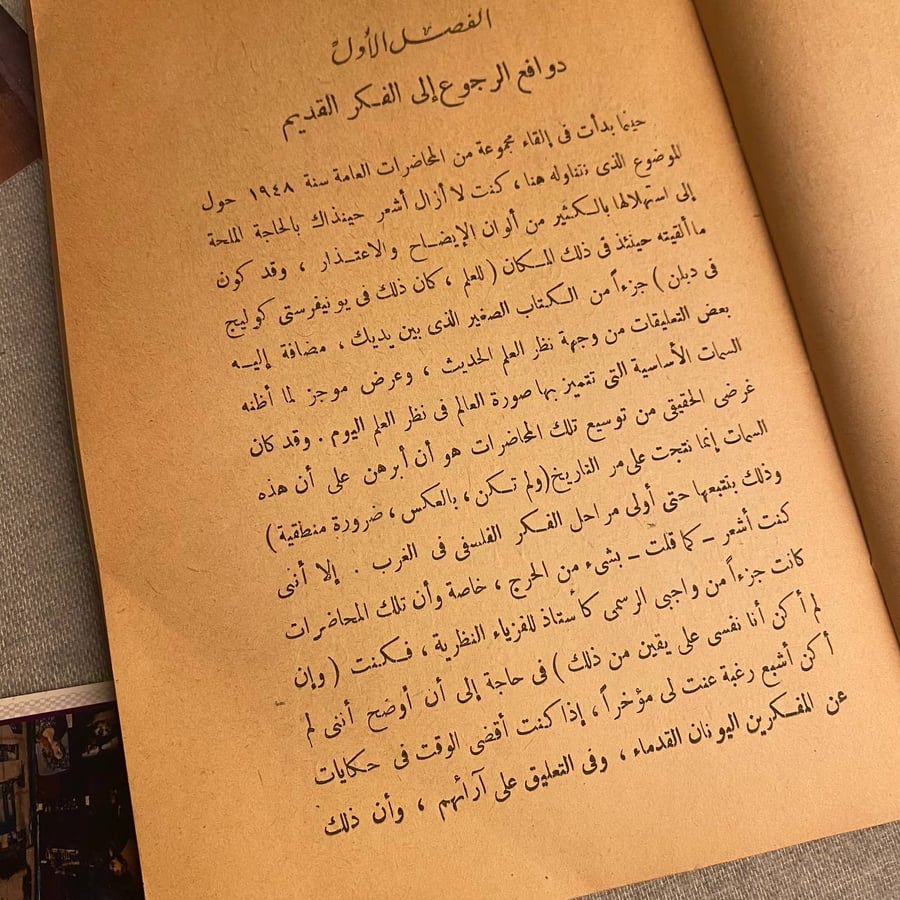 الفصل الأول
دوافع الرجوع إلى الفكر القديم
حينما بدأت فى إلقاء مجموعة من المحاضرات العامة سنة ١٩٤٨ حول
الموضوع الذى نتناوله هنا ، كنت لا أزال أشعر حينذاك بالحاجة الملحة
إلى استهلالها بالكثير من ألوان الإيضاح والاعتذار ، وقد كون
ما ألقيته حينئذ فى ذلك المكان ( للعلم ، كان ذلك فى يونيفرستى كوليج
فى دبلن ) جزءاً من الكتاب الصغير الذى بين يديك ، مضافة إليه
بعض التعليقات من وجهة نظر العلم الحديث ، وعرض موجز لما أظنه
السمات الأساسية التى تتميز بها صورة العالم فى نظر العلم اليوم . وقد كان
غرضى الحقيقى من توسيع تلك المحاضرات هو أن أبرهن على أن هذه
السمات إنما نتجت على مر التاريخ (ولم تكن ، بالعكس ، ضرورة منطقية)
وذلك بتتبعها حتى أولى مراحل الفكر الفلسفى فى الغرب . إلا أننى
كنت أشعر – كما قلت – بشىء من الحرج ، خاصة وأن تلك المحاضرات
كانت جزءاً من واجبى الرسمى كأستاذ للفزياء النظرية ، فكنت ( وإن
لم أكن أنا نفسى على يقين من ذلك ) فى حاجة إلى أن أوضح أننى لم
أكن أشبع رغبة عنت لى مؤخراً ، إذا كنت أقضى الوقت فى حكايات
عن المفكرين اليونان القدماء ، وفى التعليق على آرائهم ، وأن ذلك